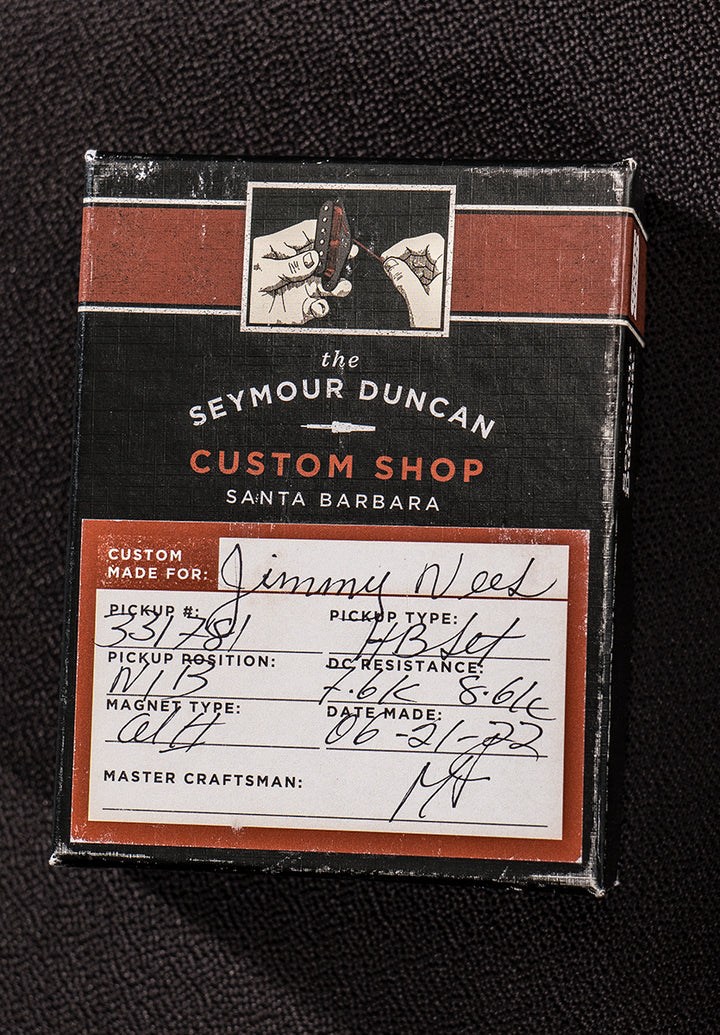 the
SEYMOUR DUNCAN
CUSTOM SHOP
SANTA BARBARA
CUSTOM
MADE FOR: Jimmy Nees
PICKUP #: PICKUP TYPE:
331781 HB Set
PICKUP POSITION: DC RESISTANCE:
N/B 7.61K 8.61K
MAGNET TYPE: DATE MADE:
06-21-22
MASTER CRAFTSMAN: